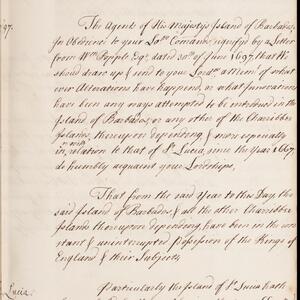 '97.
The Agents of His Majesty's Island of Barbados
In Obedience to your Lo:pps Comands signifyed by a Letter
from Wm Popple Esqr, dated 30th of June 1697, that We
should draw up & send to your Lordps a Mem.l of what
ever Alterations have happen'd, or what Innovations
have been any ways attempted to be introduced in the
Island of Barbados, or any other of the Charibbee
Islands, thereupon depending, & more especially
in relation to that of St. Lucia, since the Year 1667
do humbly acquaint your Lordships,
That from the said Year to this Day, the
said Island of Barbados, & all the other Charibbee
Island thereupon depending, have been in the con
stant & uninterrupted Possession of the Kings of
England & their Subjects.
Lucia.
Particularly the Island of St. Lucia hath